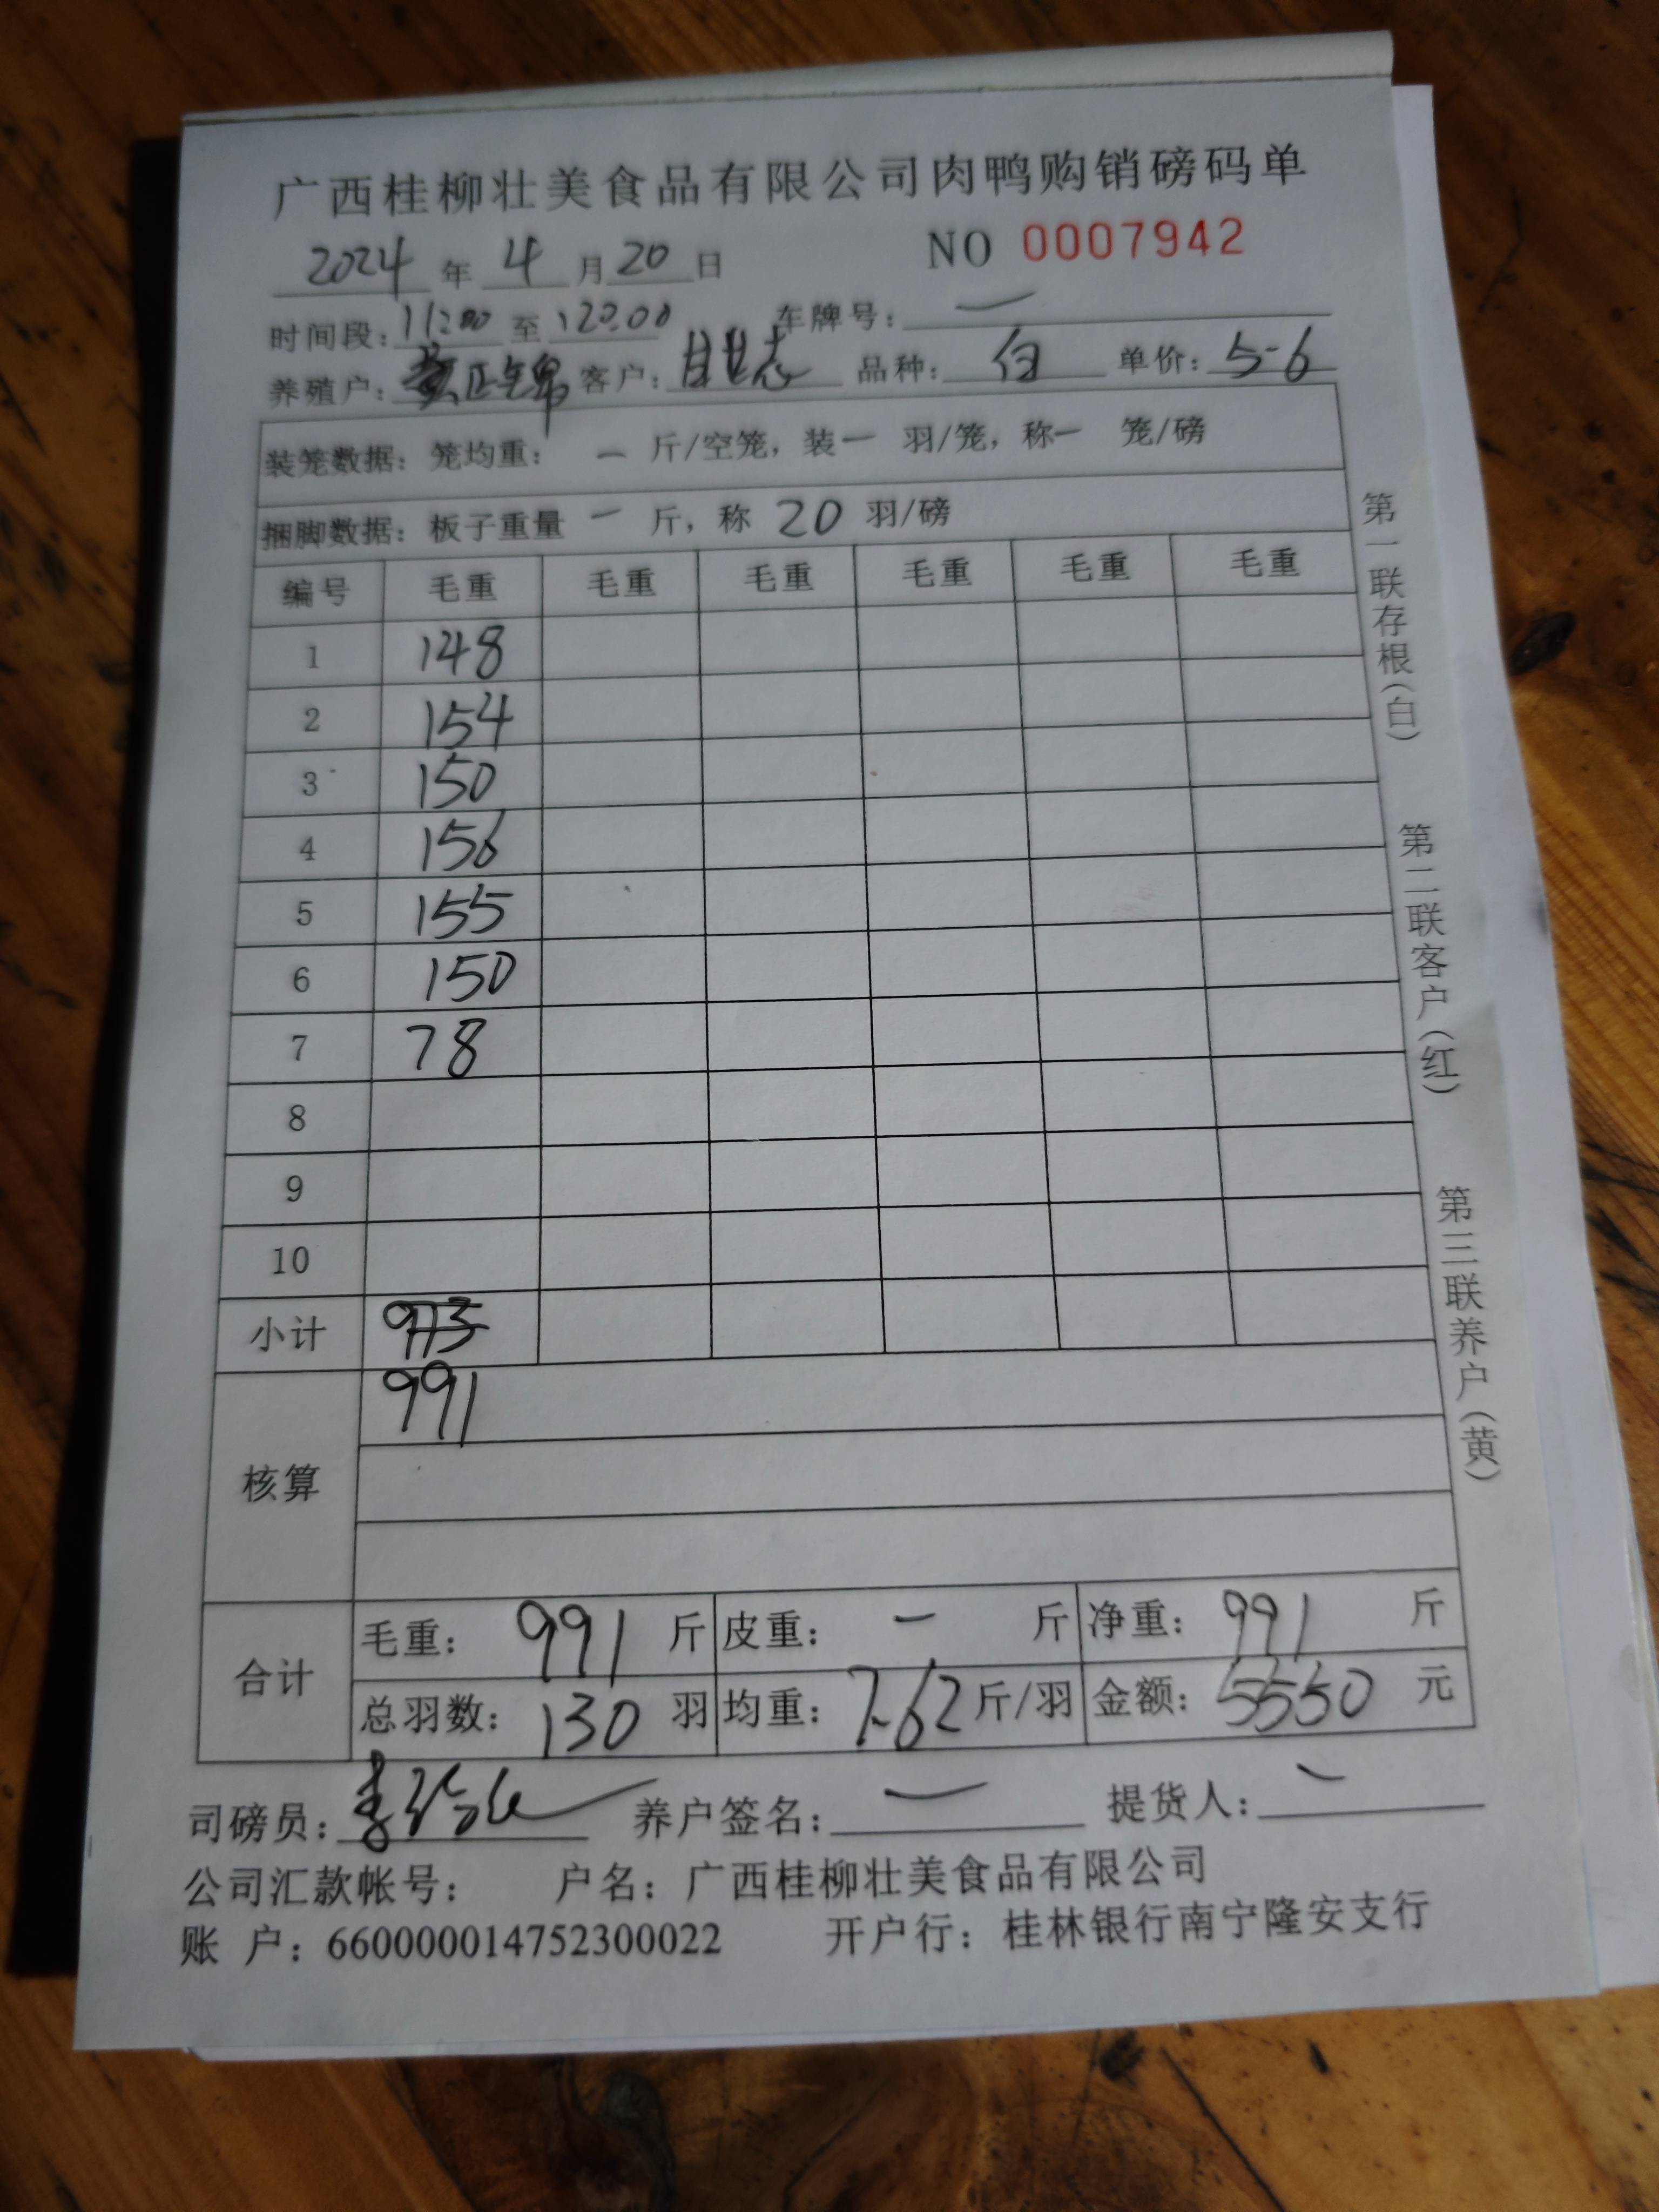 广西桂柳壮美食品有限公司肉鸭购销磅码单
2024 年 4 月 20 日 NO 0007942
时间段: 11:00 至 12:00 车牌号: 一
养殖户: 正锦 客户: 品种: 白 单价: 5-6
装笼数据: 笼均重: 一 斤/空笼, 装一 羽/笼, 称一 笼/磅
捆脚数据: 板子重量 一 斤, 称 20 羽/磅
编号 毛重 毛重 毛重 毛重 毛重 毛重
1 148
2 154
3 150
4 156
5 155
6 150
7 78
8
9
10
小计 973
核算 991
合计 毛重: 991 斤 皮重: 一 斤 净重: 991 斤
总羽数: 130 羽 均重: 7.62 斤/羽 金额: 5550 元
司磅员: 养户签名: 一 提货人: 一
公司汇款帐号: 户名: 广西桂柳壮美食品有限公司
账 户: 660000014752300022 开户行: 桂林银行南宁隆安支行
第一联存根(白)
第二联客户(红)
第三联养户(黄)